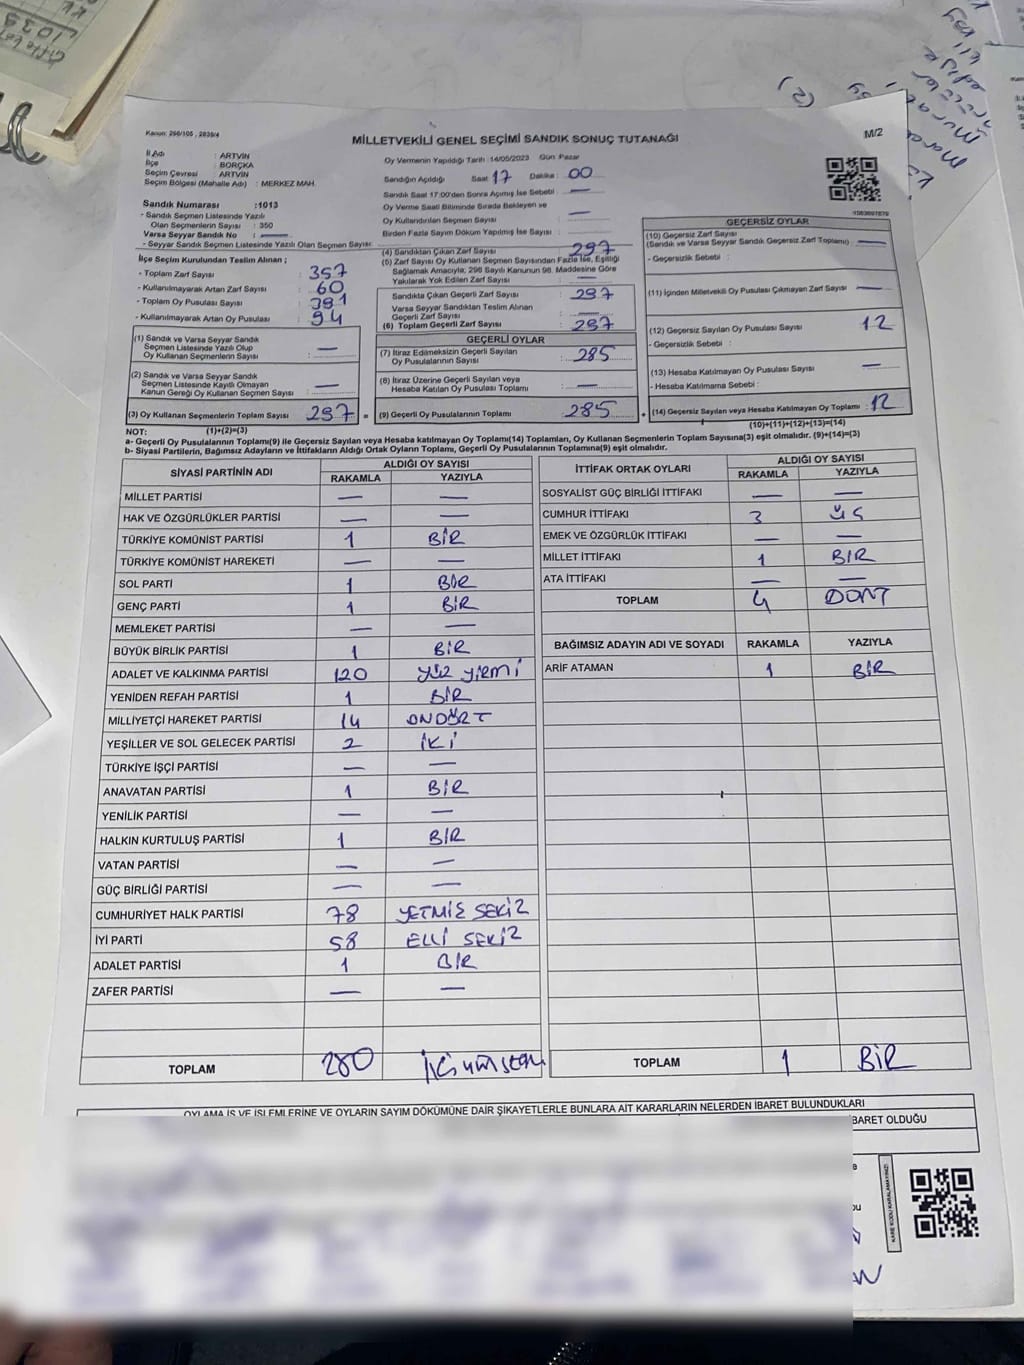 Kanun: 298/105 , 2839/4
MİLLETVEKİLİ GENEL SEÇİMİ SANDIK SONUÇ TUTANAĞI
M/2
İl Adı : ARTVİN
İlçe : BORÇKA
Seçim Çevresi : ARTVİN
Seçim Bölgesi (Mahalle Adı) : MERKEZ MAH.
Sandık Numarası :1013
- Sandık Seçmen Listesinde Yazılı
Olan Seçmenlerin Sayısı : 350
Varsa Seyyar Sandık No : —
- Seyyar Sandık Seçmen Listesinde Yazılı Olan Seçmen Sayısı:
İlçe Seçim Kurulundan Teslim Alınan ;
- Toplam Zarf Sayısı : 357
- Kullanılmayarak Artan Zarf Sayısı : 60
- Toplam Oy Pusulası Sayısı : 391
- Kullanılmayarak Artan Oy Pusulası : 94
(1) Sandık ve Varsa Seyyar Sandık
Seçmen Listesinde Yazılı Olup
Oy Kullanan Seçmenlerin Sayısı : —
(2) Sandık ve Varsa Seyyar Sandık
Seçmen Listesinde Kayıtlı Olmayan
Kanun Gereği Oy Kullanan Seçmen Sayısı : —
(3) Oy Kullanan Seçmenlerin Toplam Sayısı : 297 =
Oy Vermenin Yapıldığı Tarih :14/05/2023 Gün Pazar
Sandığın Açıldığı Saat 17 Dakika : 00
Sandık Saat 17:00'den Sonra Açılmış İse Sebebi : —
Oy Verme Saati Bitiminde Sırada Bekleyen ve
Oy Kullandırılan Seçmen Sayısı : —
Birden Fazla Sayım Döküm Yapılmış İse Sayısı :
(4) Sandıktan Çıkan Zarf Sayısı : 297
(5) Zarf Sayısı Oy Kullanan Seçmen Sayısından Fazla İse, Eşitliği
Sağlamak Amacıyla; 298 Sayılı Kanunun 98. Maddesine Göre
Yakılarak Yok Edilen Zarf Sayısı : —
Sandıkta Çıkan Geçerli Zarf Sayısı : 297
Varsa Seyyar Sandıktan Teslim Alınan
Geçerli Zarf Sayısı : —
(6) Toplam Geçerli Zarf Sayısı : 297
GEÇERLİ OYLAR
(7) İtiraz Edilmeksizin Geçerli Sayılan
Oy Pusulalarının Sayısı : 285
(8) İtiraz Üzerine Geçerli Sayılan veya
Hesaba Katılan Oy Pusulası Toplamı : —
(9) Geçerli Oy Pusulalarının Toplamı : 285 +
GEÇERSİZ OYLAR
(10) Geçersiz Zarf Sayısı
(Sandık ve Varsa Seyyar Sandık Geçersiz Zarf Toplamı) : —
- Geçersizlik Sebebi :
(11) İçinden Milletvekili Oy Pusulası Çıkmayan Zarf Sayısı : —
(12) Geçersiz Sayılan Oy Pusulası Sayısı : 12
- Geçersizlik Sebebi :
(13) Hesaba Katılmayan Oy Pusulası Sayısı : —
- Hesaba Katılmama Sebebi :
(14) Geçersiz Sayılan veya Hesaba Katılmayan Oy Toplamı : 12
NOT: (1)+(2)=(3) (10)+(11)+(12)+(13)=(14)
a- Geçerli Oy Pusulalarının Toplamı(9) ile Geçersiz Sayılan veya Hesaba katılmayan Oy Toplamı(14) Toplamları, Oy Kullanan Seçmenlerin Toplam Sayısına(3) eşit olmalıdır. (9)+(14)=(3)
b- Siyasi Partilerin, Bağımsız Adayların ve İttifakların Aldığı Ortak Oyların Toplamı, Geçerli Oy Pusulalarının Toplamına(9) eşit olmalıdır.
SİYASİ PARTİNİN ADI ALDIĞI OY SAYISI
RAKAMLA YAZIYLA
MİLLET PARTİSİ — —
HAK VE ÖZGÜRLÜKLER PARTİSİ — —
TÜRKİYE KOMÜNİST PARTİSİ 1 BİR
TÜRKİYE KOMÜNİST HAREKETİ — —
SOL PARTİ 1 BİR
GENÇ PARTİ 1 BİR
MEMLEKET PARTİSİ — —
BÜYÜK BİRLİK PARTİSİ 1 BİR
ADALET VE KALKINMA PARTİSİ 120 YÜZ YİRMİ
YENİDEN REFAH PARTİSİ 1 BİR
MİLLİYETÇİ HAREKET PARTİSİ 14 ONDÖRT
YEŞİLLER VE SOL GELECEK PARTİSİ 2 İKİ
TÜRKİYE İŞÇİ PARTİSİ — —
ANAVATAN PARTİSİ 1 BİR
YENİLİK PARTİSİ — —
HALKIN KURTULUŞ PARTİSİ 1 BİR
VATAN PARTİSİ — —
GÜÇ BİRLİĞİ PARTİSİ — —
CUMHURİYET HALK PARTİSİ 78 YETMİŞ SEKİZ
İYİ PARTİ 58 ELLİ SEKİZ
ADALET PARTİSİ 1 BİR
ZAFER PARTİSİ — —
TOPLAM 280
İTTİFAK ORTAK OYLARI ALDIĞI OY SAYISI
RAKAMLA YAZIYLA
SOSYALİST GÜÇ BİRLİĞİ İTTİFAKI — —
CUMHUR İTTİFAKI 3 ÜÇ
EMEK VE ÖZGÜRLÜK İTTİFAKI — —
MİLLET İTTİFAKI 1 BIR
ATA İTTİFAKI — —
TOPLAM 4 DÖRT
BAĞIMSIZ ADAYIN ADI VE SOYADI RAKAMLA YAZIYLA
ARİF ATAMAN 1 BİR
TOPLAM 1 BİR
OYLAMA İŞ VE İŞLEMLERİNE VE OYLARIN SAYIM DÖKÜMÜNE DAİR ŞİKAYETLERLE BUNLARA AİT KARARLARIN NELERDEN İBARET BULUNDUKLARI
İBARET OLDUĞU